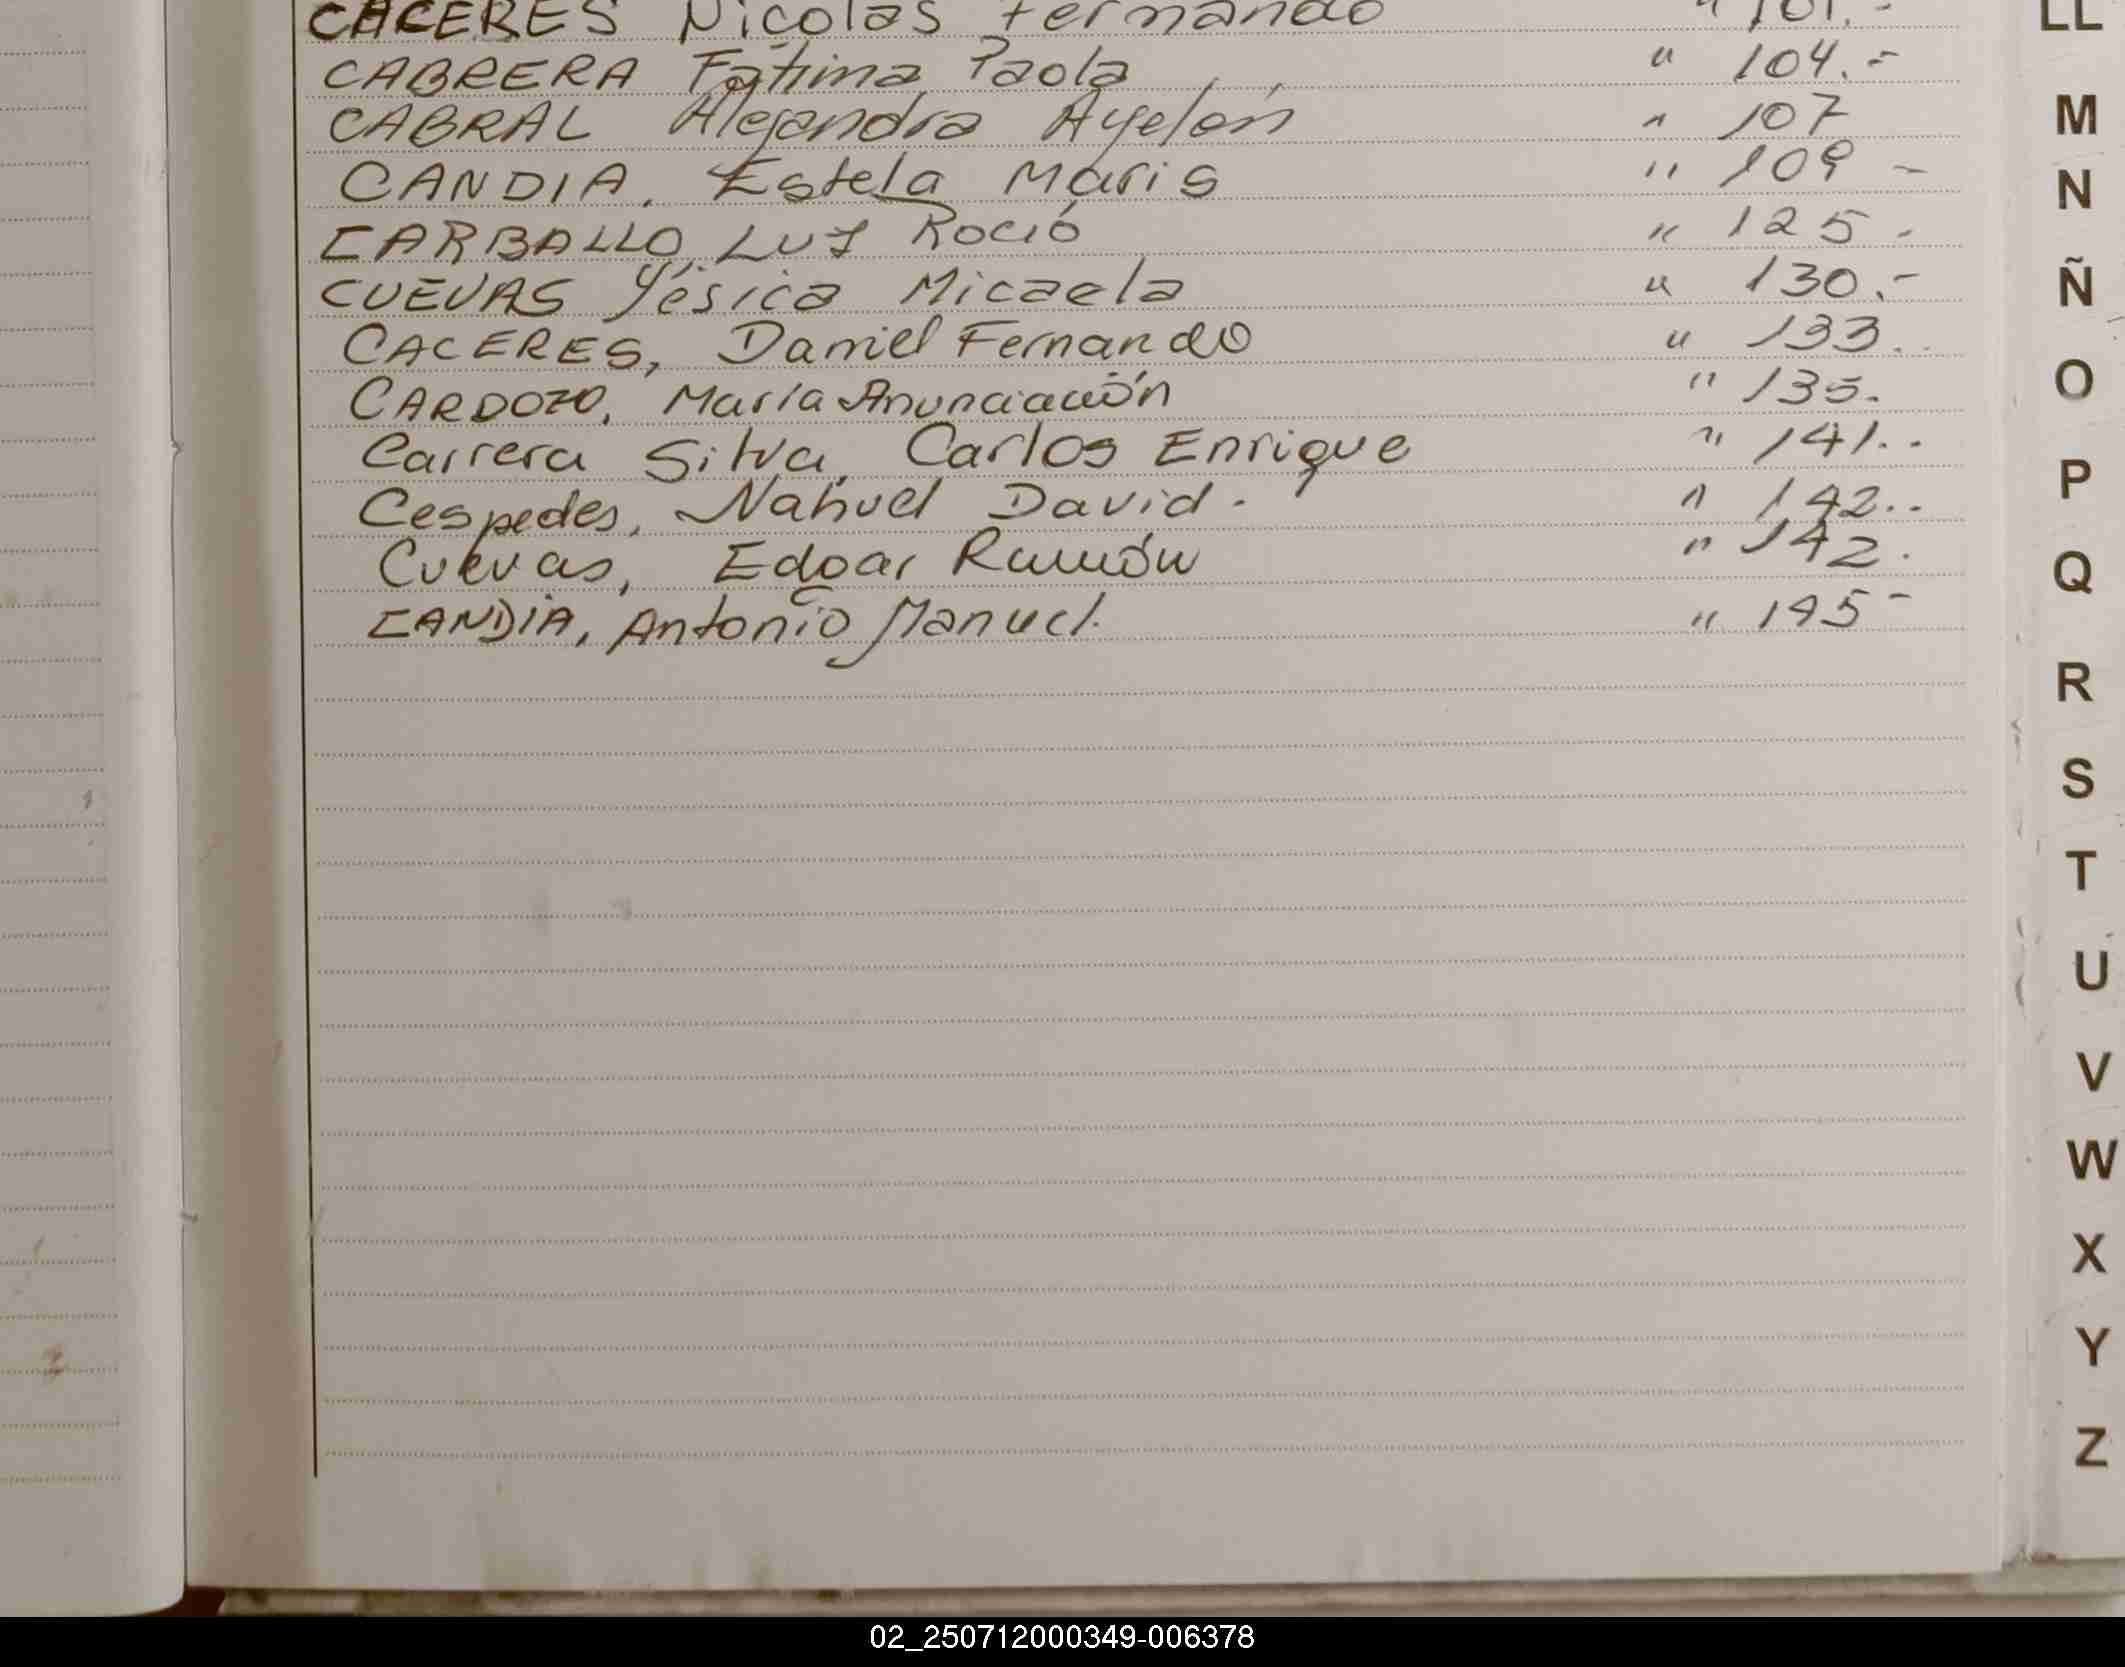 CACERES Nicolás Fernando " 101.-
CABRERA Fátima Paola " 104.-
CABRAL Alejandra Ayelén " 107
CANDIA, Estela Maris " 109 -
CARBALLO, Luz Roció " 125.-
CUEVAS Yésica Micaela " 130.-
CACERES, Daniel Fernando " 133..
CARDOZO, María Anunciación " 135.
Carrera Silva, Carlos Enrique " 141..
Cespedes, Nahuel David. " 142..
Cuevas, Edgar Ramón " 142.
CANDIA, Antonio Manuel. " 145-
LL
M
N
Ñ
O
P
Q
R
S
T
U
V
W
X
Y
Z
02_250712000349-006378